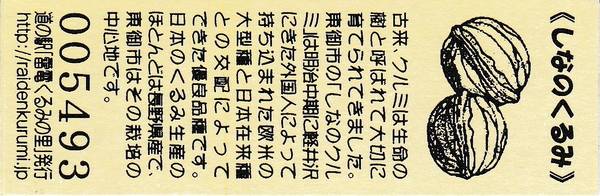 《しなのくるみ》
古来、クルミは生命の
樹と呼ばれて大切に
育てられてきました。
東御市の「しなのクル
ミ」は明治中期に軽井沢
にきた外国人によって
持ち込まれた欧米の
大型種と日本在来種
との交配によって
できた優良品種です。
日本のくるみ生産の
ほとんどは長野県産で、
東御市はその栽培の
中心地です。
005493
道の駅 雷電くるみの里 発行
http://raidenkurumi.jp